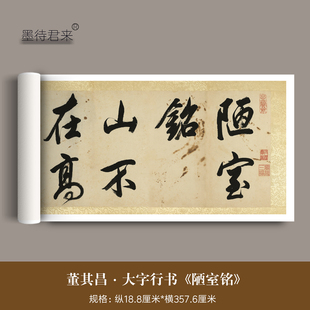 墨待君来
陋室
銘
山不
在高
董其昌·大字行书《陋室铭》
规格：纵18.8厘米*横357.6厘米